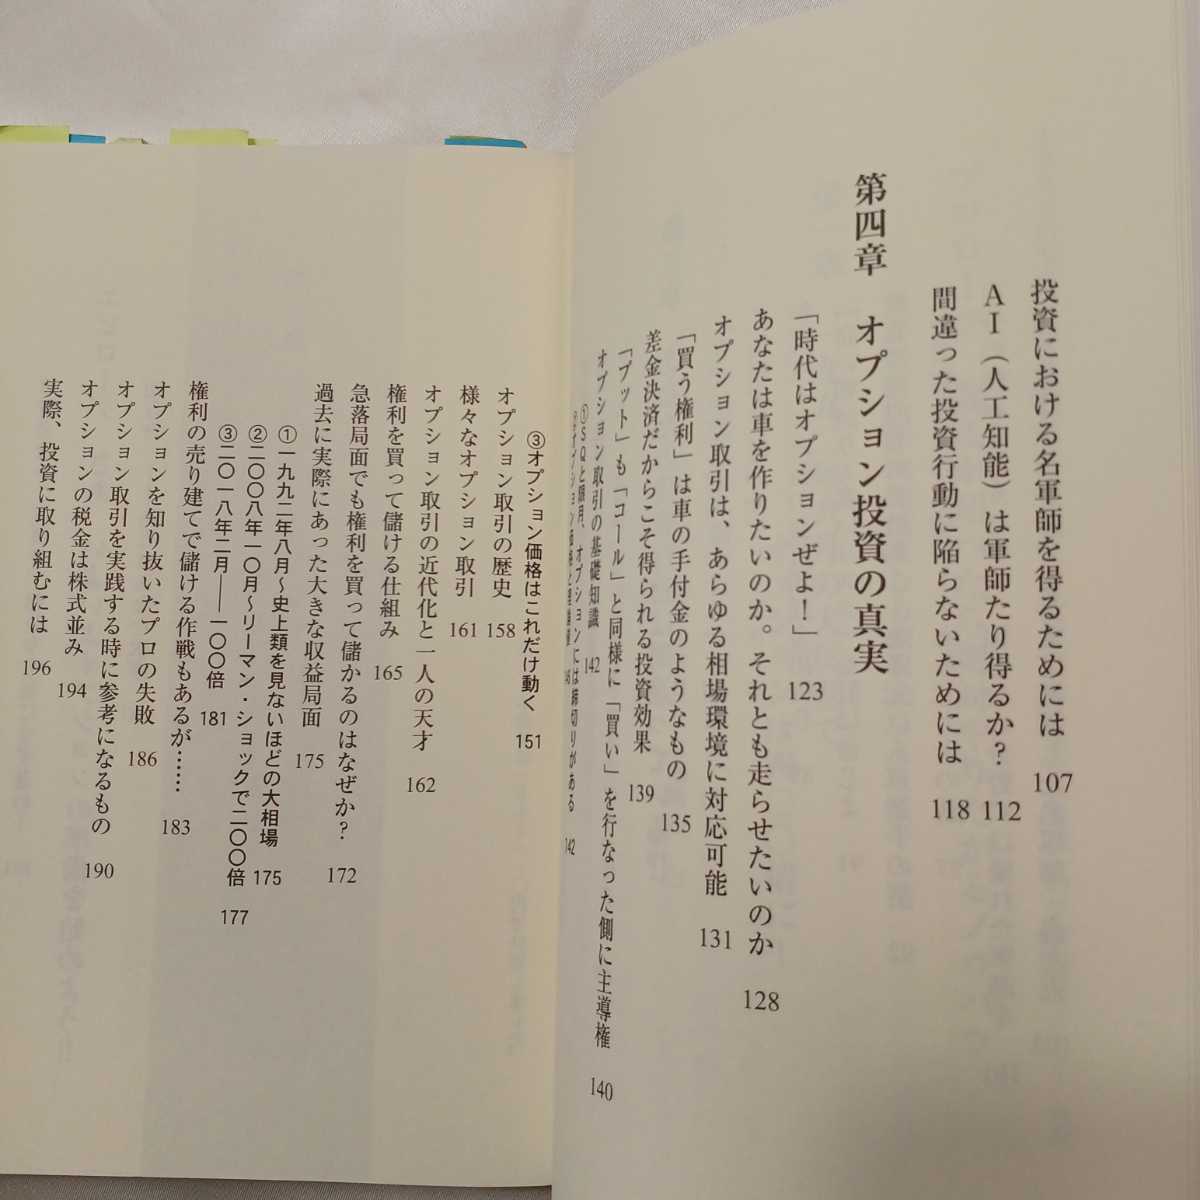 投資における名軍師を得るためには 107
AI（人工知能）は軍師たり得るか？ 112
間違った投資行動に陥らないためには 118
第四章 オプション投資の真実
「時代はオプションぜよ！」 123
あなたは車を作りたいのか。それとも走らせたいのか 128
オプション取引は、あらゆる相場環境に対応可能 131
「買う権利」は車の手付金のようなもの 135
差金決済だからこそ得られる投資効果 139
「プット」も「コール」と同様に「買い」を行なった側に主導権 140
オプション取引の基礎知識 142
①SQと限月、オプションには締切りがある 142
③オプション価格はこれだけ動く 151
オプション取引の歴史 158
様々なオプション取引 161
オプション取引の近代化と一人の天才 162
権利を買って儲ける仕組み 165
急落局面でも権利を買って儲かるのはなぜか？ 172
過去に実際にあった大きな収益局面 175
①一九九二年八月～史上類を見ないほどの大相場 175
②二〇〇八年一〇月～リーマン・ショックで二〇〇倍 177
③二〇一八年二月――一〇〇倍 181
権利の売り建てで儲ける作戦もあるが…… 183
オプションを知り抜いたプロの失敗 186
オプション取引を実践する時に参考になるもの 190
オプションの税金は株式並み 194
実際、投資に取り組むには 196